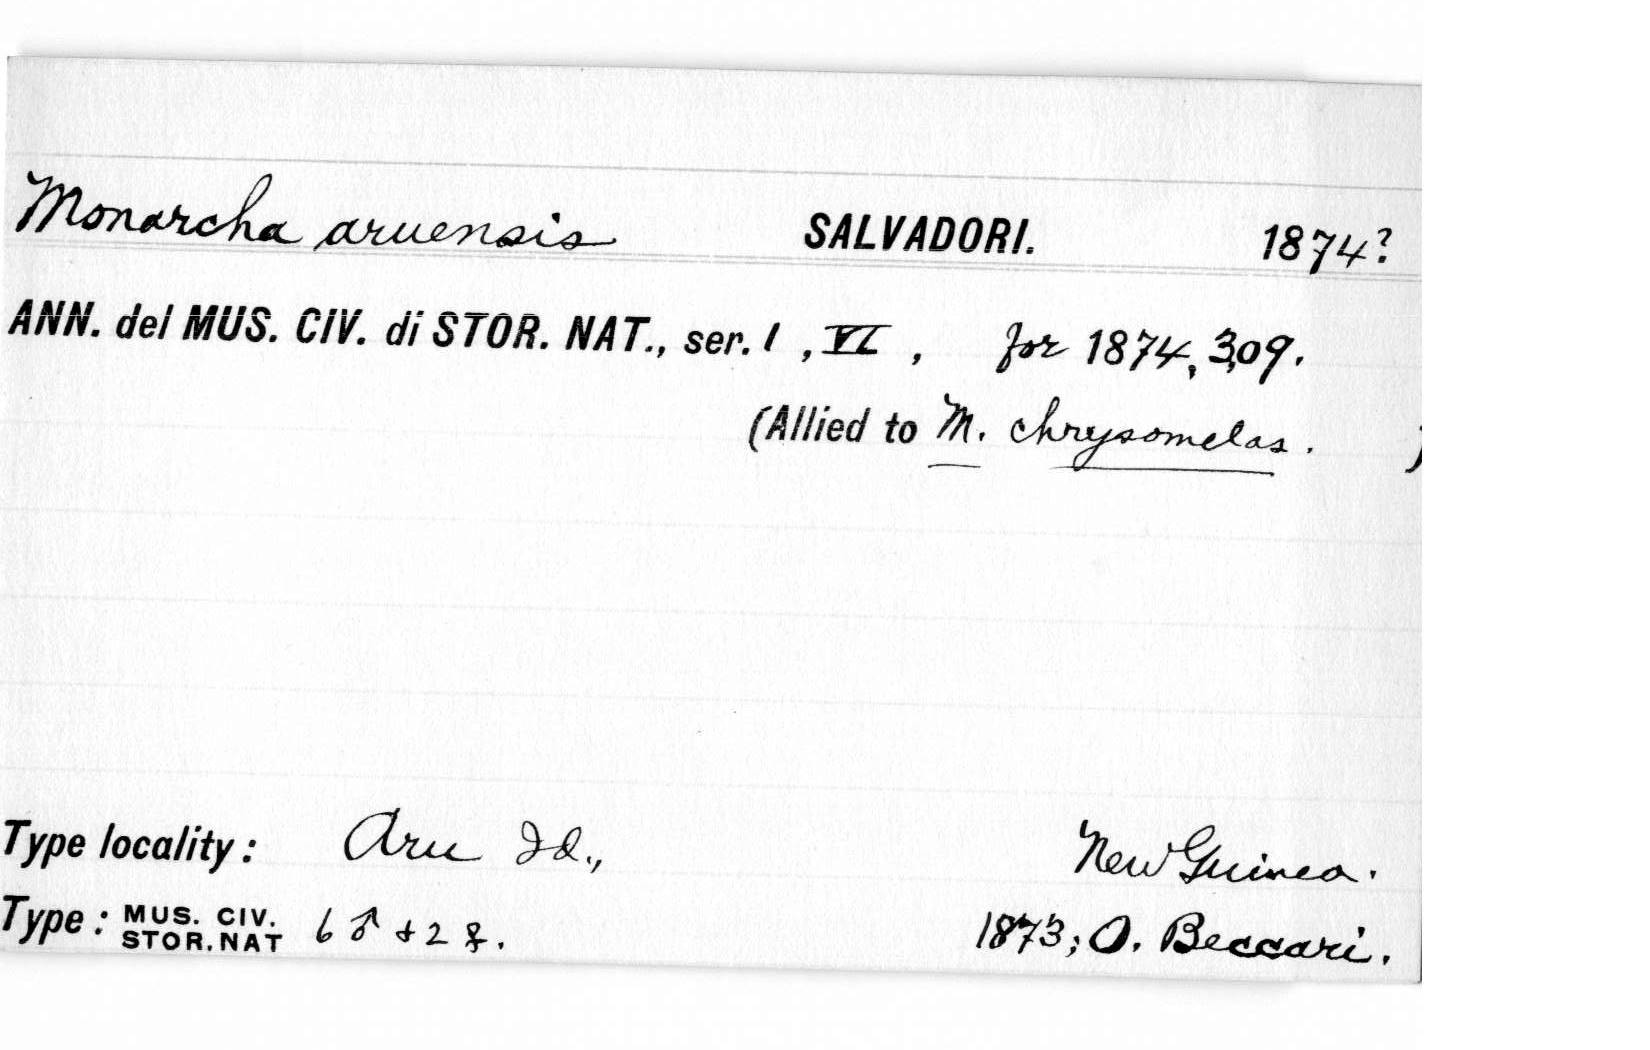 Monarcha aruensis SALVADORI. 1874?
ANN. del MUS. CIV. di STOR. NAT., ser. 1, VI, for 1874, 309.
(Allied to M. chrysomelas. )
Type locality: Aru Id., New Guinea.
Type: MUS. CIV. STOR. NAT 6 ♂ + 2 ♀. 1873; O. Beccari.